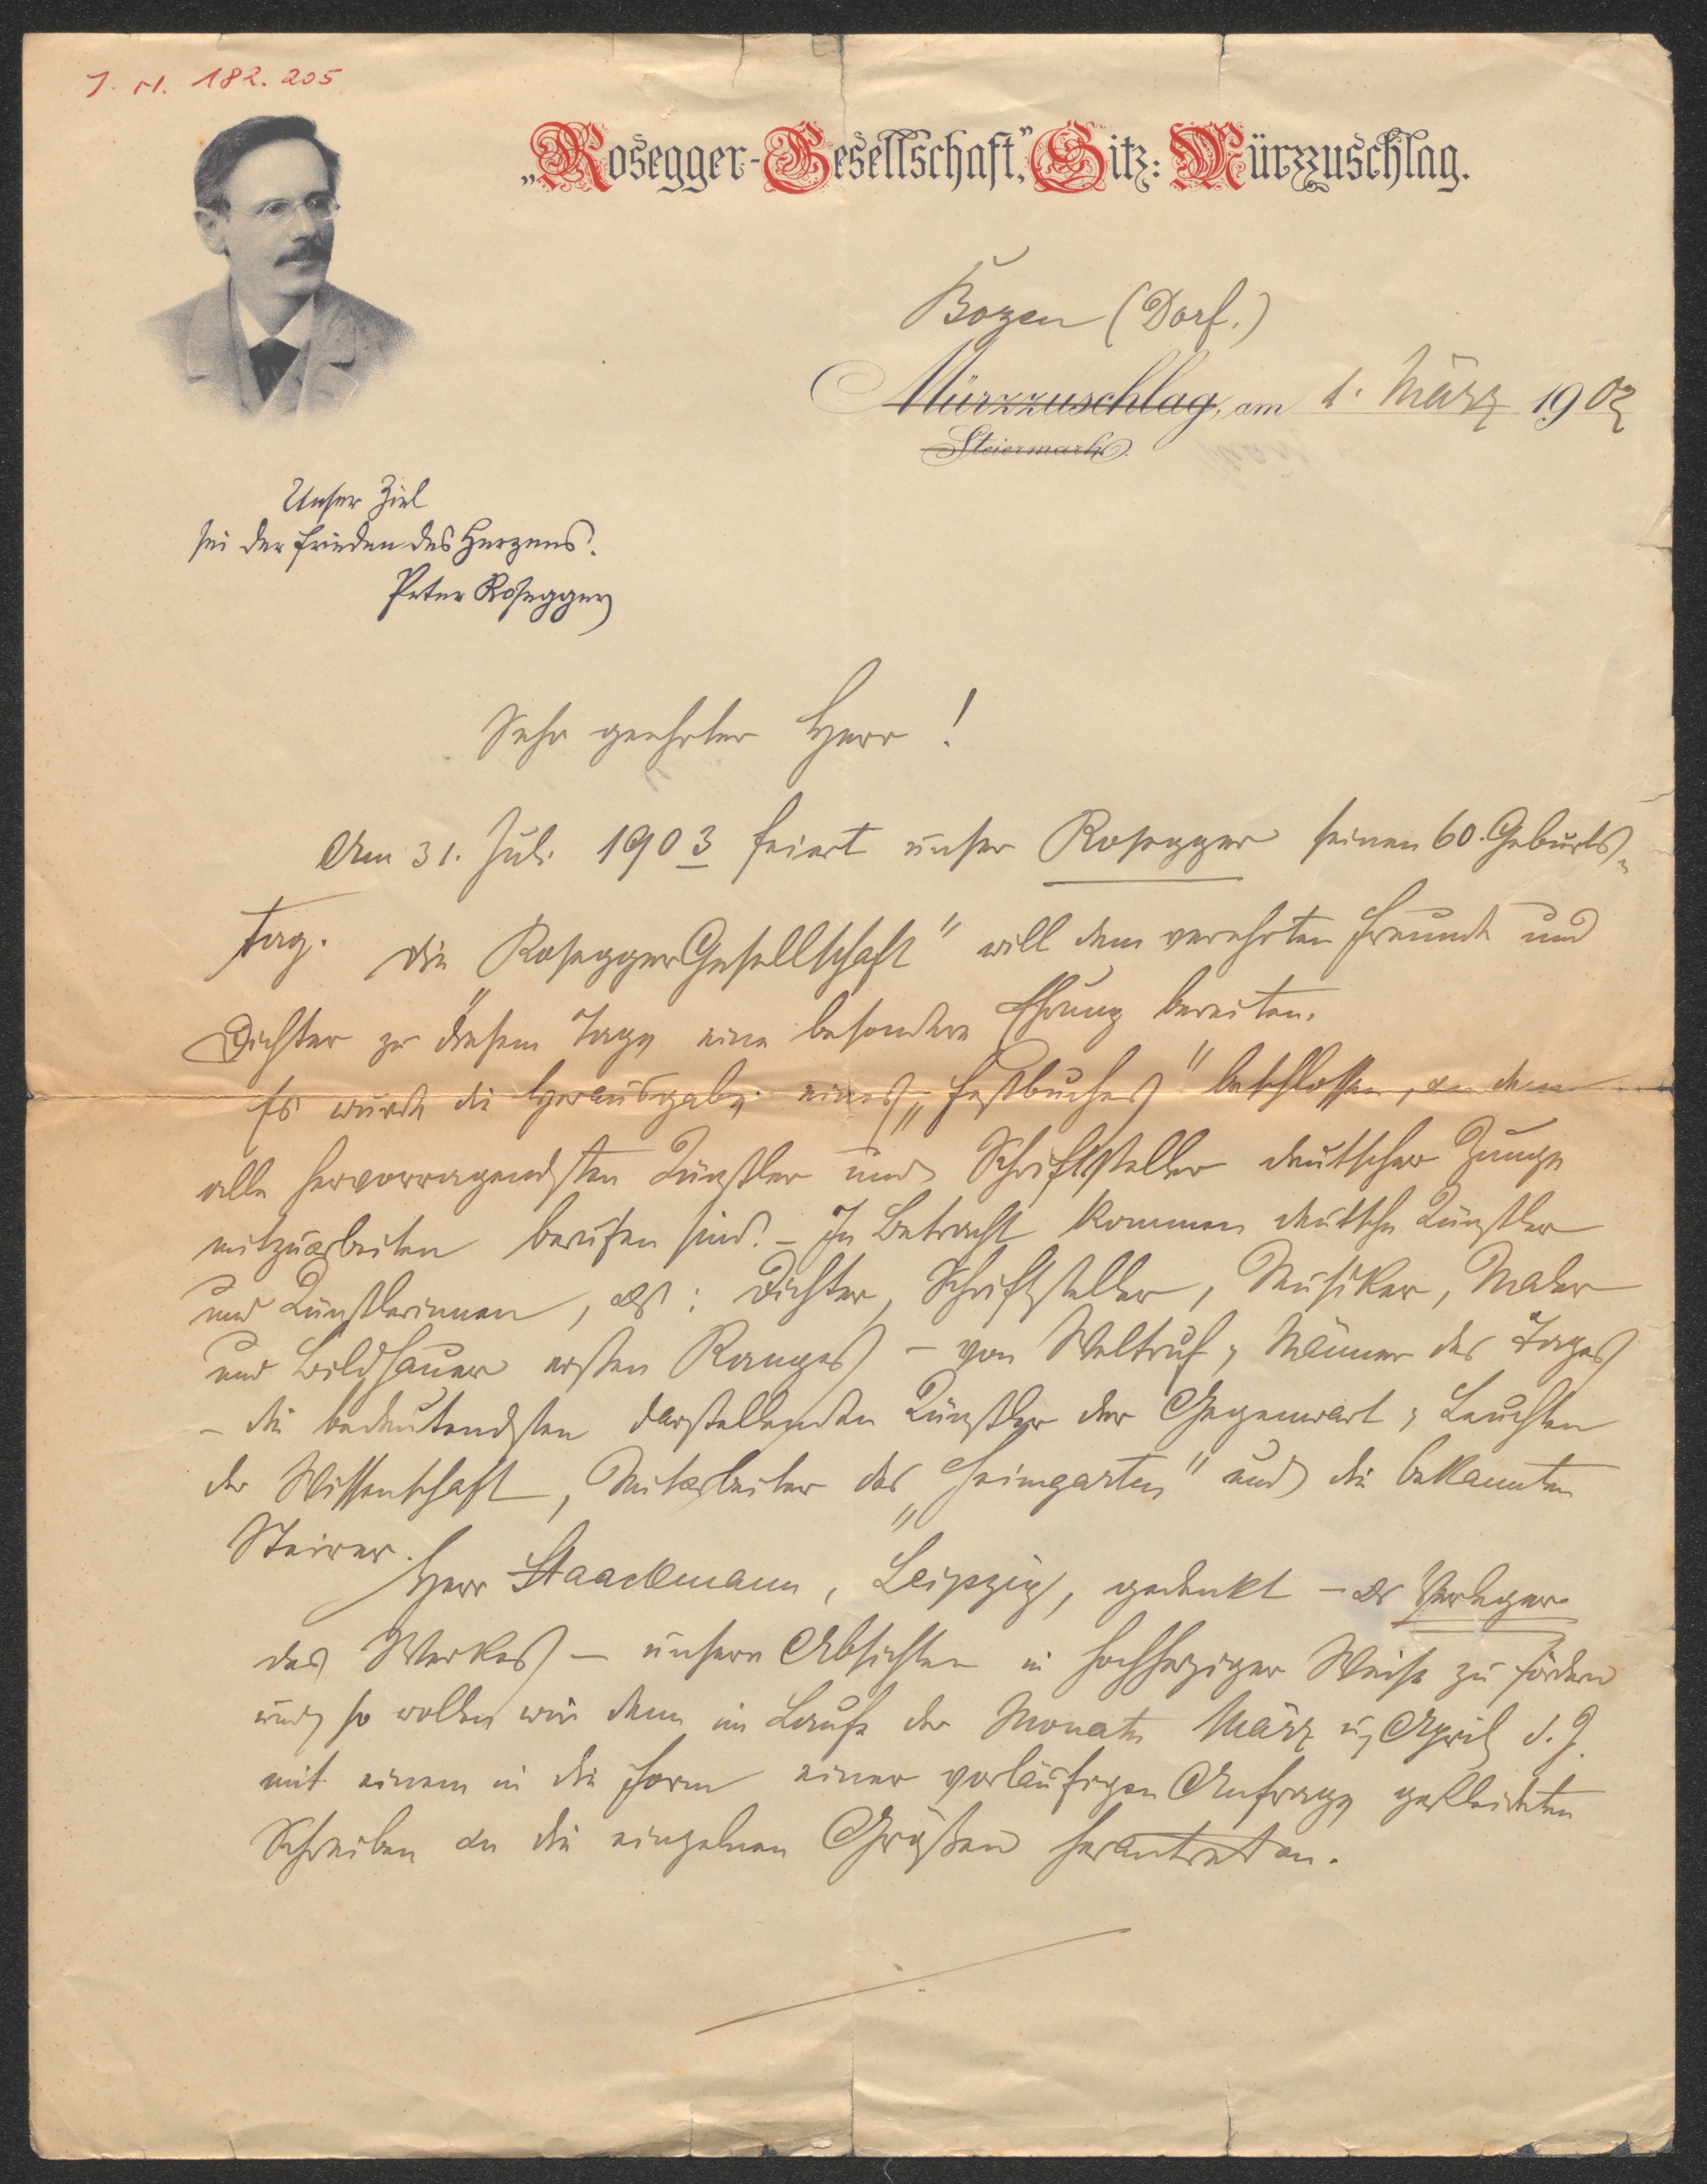 J. N. 182.205
„Rosegger-Gesellschaft“, Sitz: Mürzzuschlag.
Bozen (Dorf.)
Mürzzuschlag, am 1. März 1902
Steiermark.
Unser Ziel
sei der Frieden des Herzens.
Peter Rosegger
Sehr geehrter Herr!
Am 31. Juli 1903 feiert unser Rosegger seinen 60. Geburts-
tag. Die „Rosegger Gesellschaft“ will dem verehrten Freunde und
Dichter zu diesem Tage eine besondere Ehrung bereiten.
Es wurde die Herausgabe eines „Festbuches“ beschlossen, an dem
alle hervorragendsten Künstler und Schriftsteller deutscher Zunge
mitzuarbeiten berufen sind. – In Betracht kommen deutsche Künstler
und Künstlerinnen, als: Dichter, Schriftsteller, Musiker, Maler
und Bildhauer ersten Ranges – von Weltruf, Männer des Tages
– die bedeutendsten darstellenden Künstler der Gegenwart, Leuchten
der Wissenschaft, Mitarbeiter des „Heimgarten“ und die bekannten
Steirer.
Herr Staackmann, Leipzig, gedenkt – als Verleger
des Werkes – unsere Absichten in hochherziger Weise zu fördern
und so wollen wir denn im Laufe der Monate März u. April d. J.
mit einem in die Form einer vorläufigen Anfrage gekleideten
Schreiben an die einzelnen Größen herantreten.